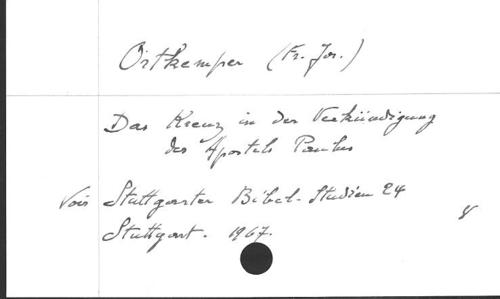 Ortkemper (Fr. Jos.)
Das Kreuz in der Verkündigung
des Apostels Paulus
Vois Stuttgarter Bibel-Studien 24
Stuttgart. 1967.
8